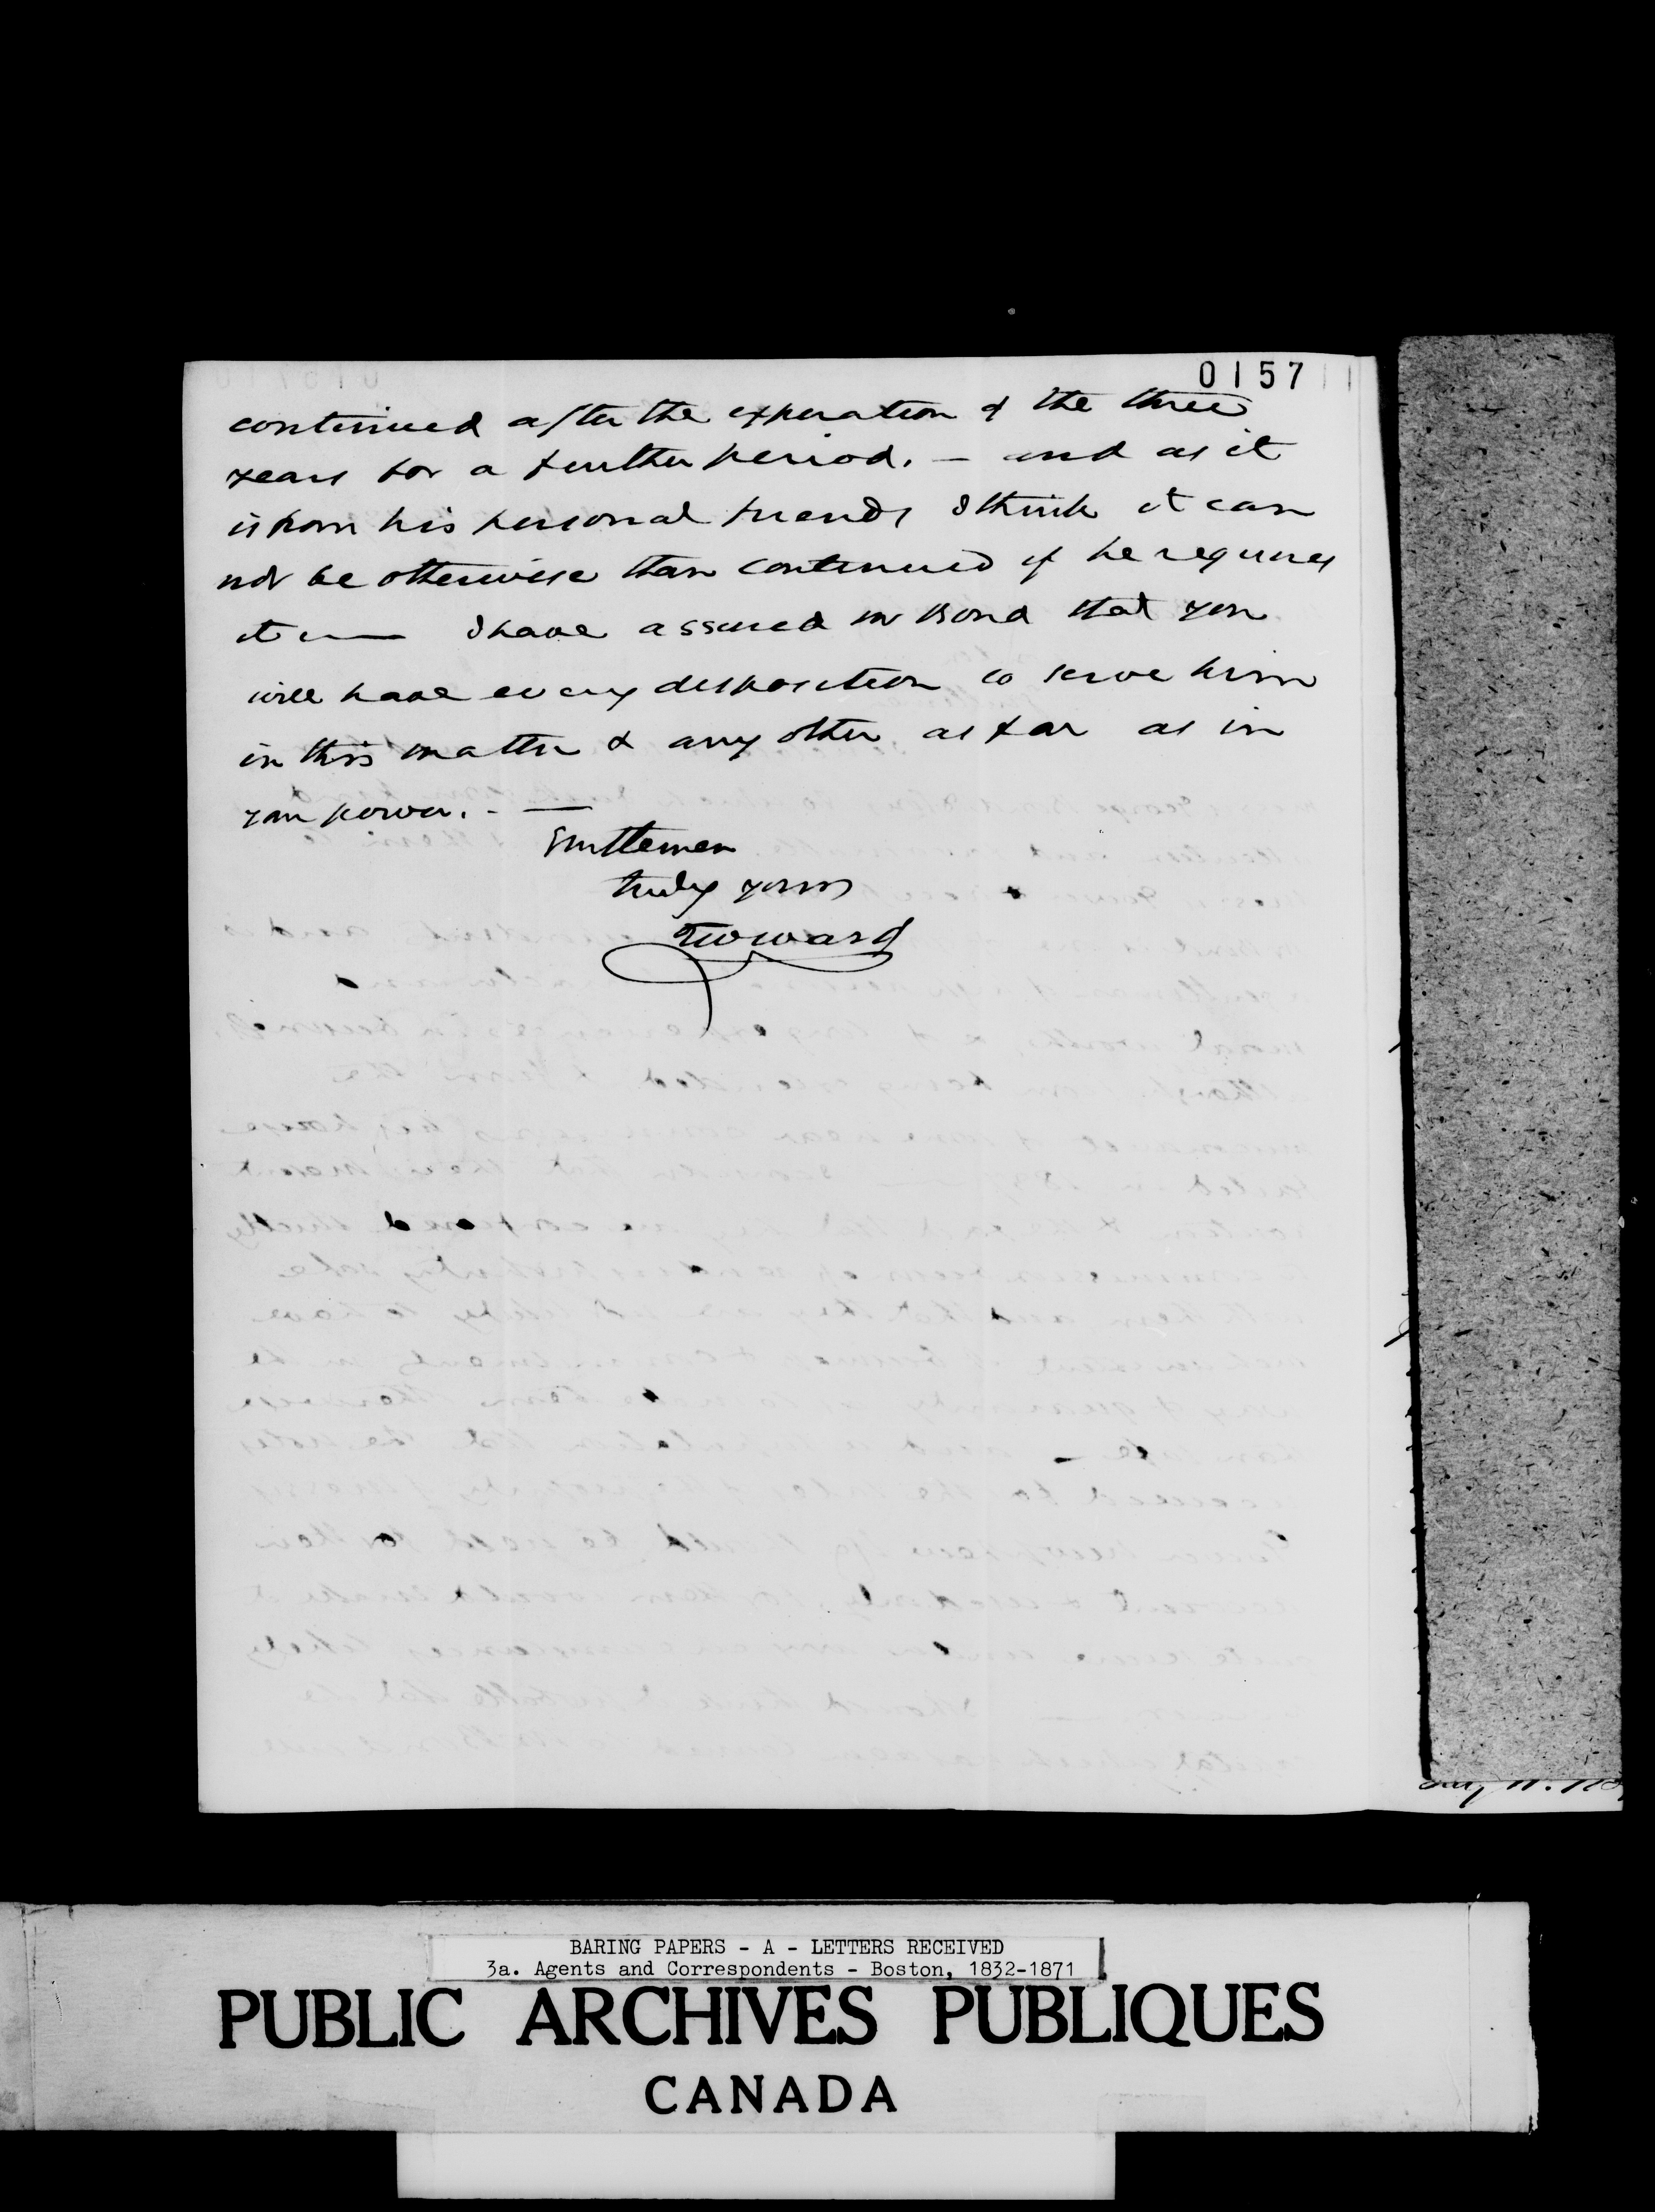 0157
continued after the expiration of the three
years for a further period. — and as it
is from his personal friends I think it can
not be otherwise than continued if he requires
it — I have assured Mr Bond that you
will have every disposition to serve him
in this matter & any other as far as in
your power. — 
Gentlemen
truly yours
TWWard
BARING PAPERS - A - LETTERS RECEIVED
3a. Agents and Correspondents - Boston, 1832-1871
PUBLIC ARCHIVES PUBLIQUES
CANADA